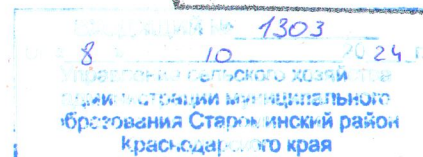 № 1303
8 10 2024 г.
Управление сельского хозяйства
администрации муниципального
образования Староминский район
Краснодарского края